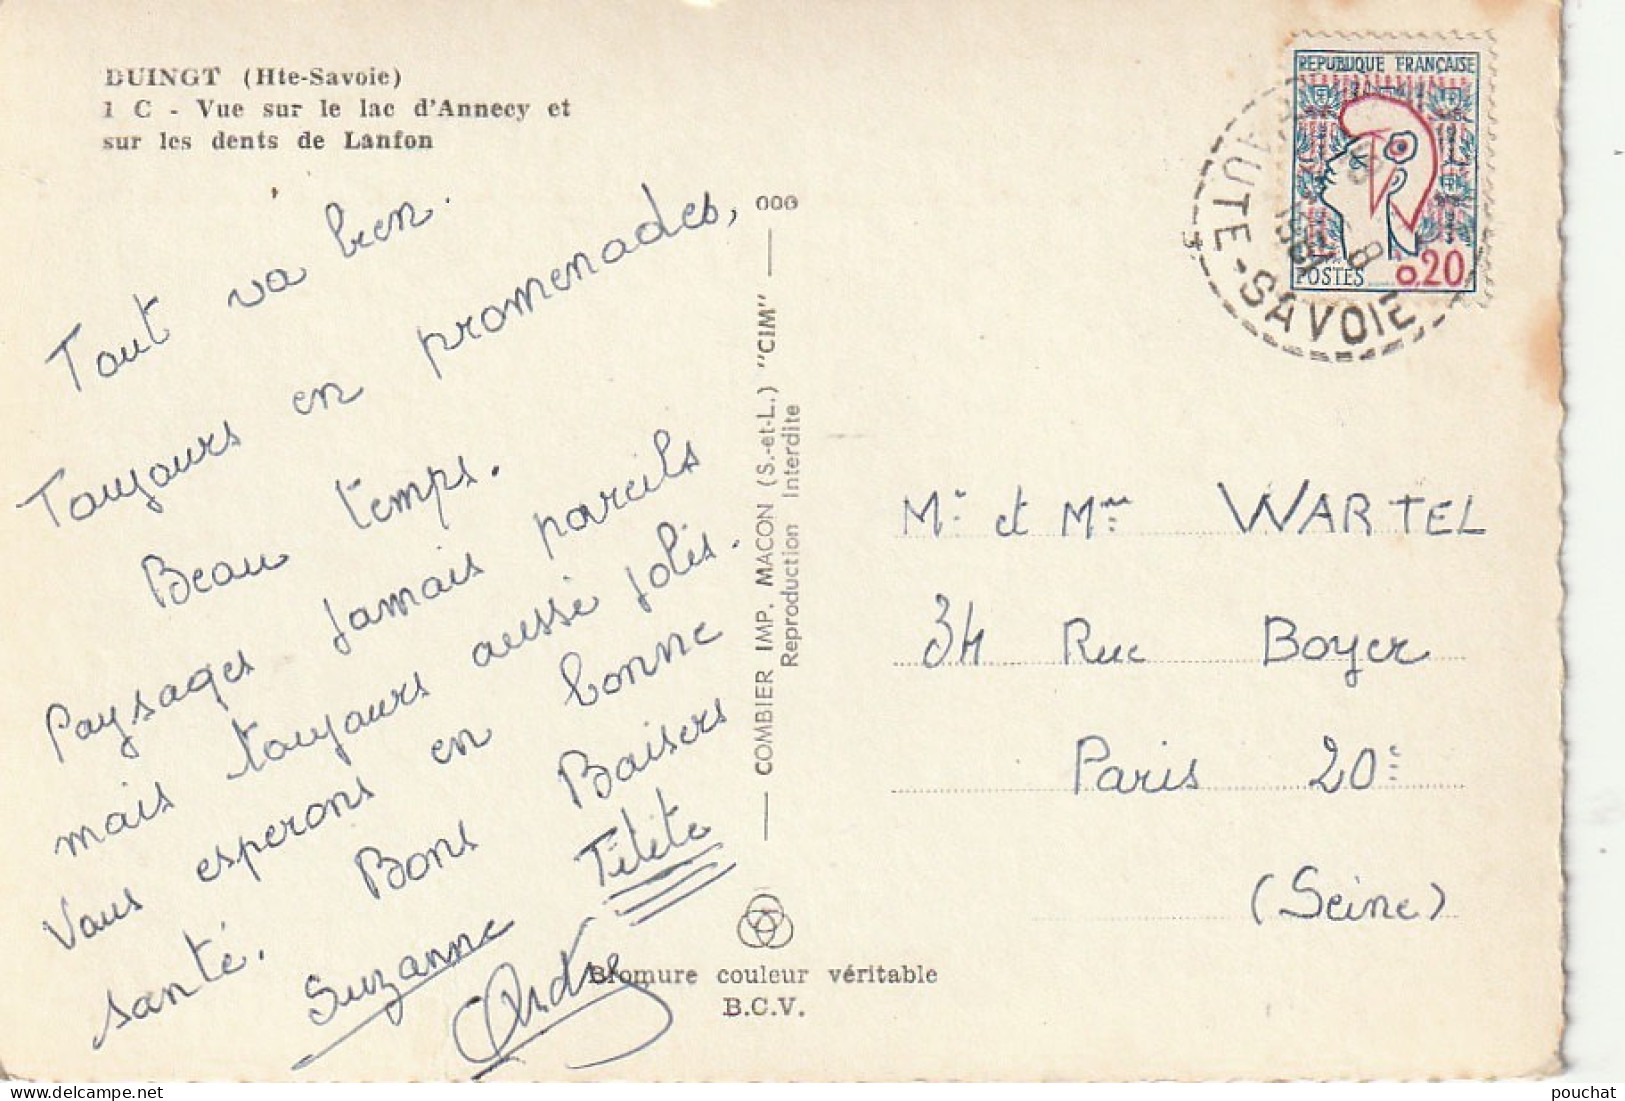 DUINGT (Hte-Savoie)
1 C - Vue sur le lac d'Annecy et
sur les dents de Lanfon
Tout va bien.
Toujours en promenades,
Beau temps.
Paysages jamais pareils
mais toujours aussi jolis.
Vous esperons en bonne
santé. Bons Baisers
Titite
Suzanne
André
000
COMBIER IMP. MACON (S.-et-L.) "CIM"
Reproduction Interdite
Bromure couleur véritable
B.C.V.
REPUBLIQUE FRANÇAISE
POSTES 0,20
HAUTE-SAVOIE
8
1961
Mr et Mme WARTEL
34 Rue Boyer
Paris 20e
(Seine)
pouchat